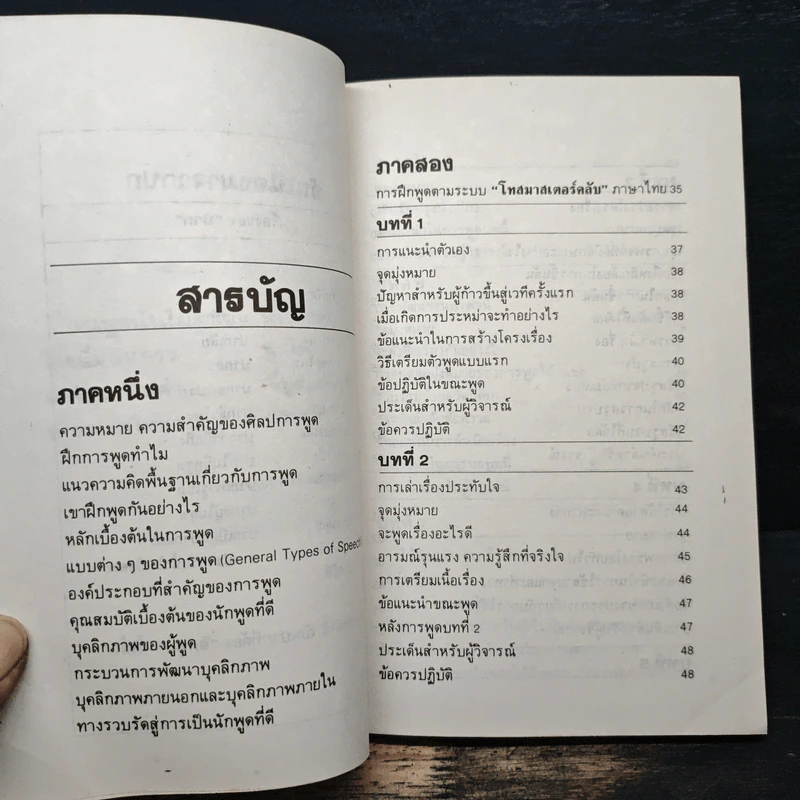 สารบัญ
ภาคหนึ่ง
ความหมาย ความสำคัญของศิลปการพูด
ฝึกการพูดทำไม
แนวความคิดพื้นฐานเกี่ยวกับการพูด
เขาฝึกพูดกันอย่างไร
หลักเบื้องต้นในการพูด
แบบต่าง ๆ ของการพูด (General Types of Speech
องค์ประกอบที่สำคัญของการพูด
คุณสมบัติเบื้องต้นของนักพูดที่ดี
บุคลิกภาพของผู้พูด
กระบวนการพัฒนาบุคลิกภาพ
บุคลิกภาพภายนอกและบุคลิกภาพภายใน
ทางรวบรัดสู่การเป็นนักพูดที่ดี
ภาคสอง
การฝึกพูดตามระบบ “โทสมาสเตอร์คลับ” ภาษาไทย 35
บทที่ 1
การแนะนำตัวเอง 37
จุดมุ่งหมาย 38
ปัญหาสำหรับผู้ก้าวขึ้นสู่เวทีครั้งแรก 38
เมื่อเกิดการประหม่าจะทำอย่างไร 38
ข้อแนะนำในการสร้างโครงเรื่อง 39
วิธีเตรียมตัวพูดแบบแรก 40
ข้อปฏิบัติในขณะพูด 40
ประเด็นสำหรับผู้วิจารณ์ 42
ข้อควรปฏิบัติ 42
บทที่ 2
การเล่าเรื่องประทับใจ 43
จุดมุ่งหมาย 44
จะพูดเรื่องอะไรดี 44
อารมณ์รุนแรง ความรู้สึกที่จริงใจ 45
การเตรียมเนื้อเรื่อง 46
ข้อแนะนำขณะพูด 47
หลังการพูดบทที่ 2 47
ประเด็นสำหรับผู้วิจารณ์ 48
ข้อควรปฏิบัติ 48